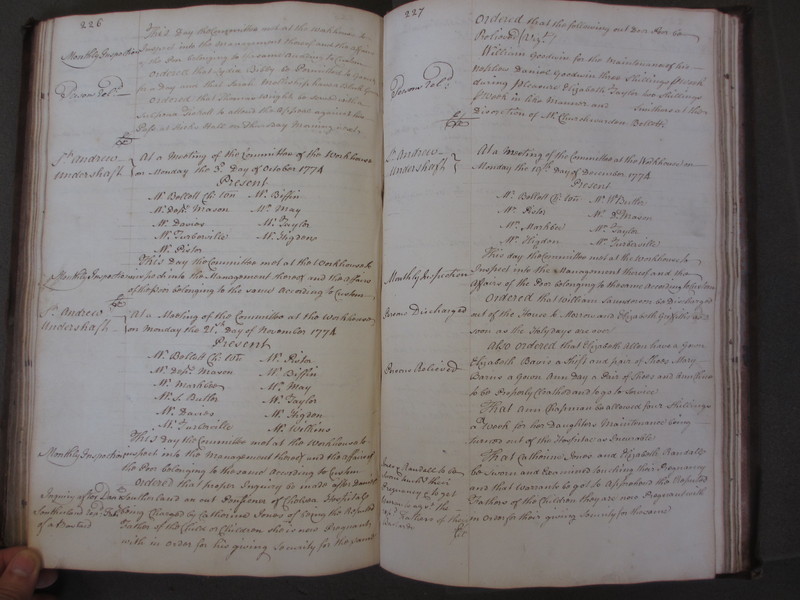 226
This Day the Committee met at the Workhouse to
Monthly Inspection
Inspect into the Management thereof and the Affairs
of the Poor belonging to the same According to Custom
Ordered that Lydia Bilby be Permitted to go out
for a Day and that Sarah have a Black Gown
Ordered that Thomas Wright be served with a
Summons Ticket to attend the Appeal against his
Pass at Hicks Hall on Thursday Morning next
St. Andrew
Undershaft
At a Meeting of the Committee of the Workhouse
on Monday the 3d. Day of October 1774
Present
Mr. Bellott Ch: ton Mr. Biffin
Mr. Depy. Mason Mr. May
Mr. Davies Mr. Taylor
Mr. Turberville Mr. Higdon
Mr. Pistor
This day the Committee met at the Workhouse to
Monthly Inspection
Inspect into the Management thereof and the affairs
of the Poor belonging to the same According to Custom
St. Andrew
Undershaft
At a Meeting of the Committee at the Workhouse
on Monday the 21st. Day of November 1774
Present
Mr. Bellott Mr. Pistor
Mr. Depy. Mason Mr. Biffin
Mr. Markbee Mr. May
Mr. S. Butler Mr. Taylor
Mr. Davies Mr. Higdon
Mr. Turberville Mr. Wilkins
This Day the Committee met at the Workhouse to
Monthly Inspection
Inspect into the Management thereof and the affairs of
the Poor belonging to the same According to Custom
Ordered that proper Inquiry be made after Daniel
Inquiry after Danl.
Southerland
of a Bastard
Southerland an out Pensioner of Chelsea Hospital he
being Charged by Catherine Jones of being the Reputed
Father of the Child or Children she is now Pregnant
with in order for his giving Security for the same
227
Ordered that the following out Door Poor be
Relieved (Vizt.)
Persons Relvd.
William Goodwin for the Maintenance of his
Nephew Daniel Goodwin three Shillings P Week
during pleasure Elizabeth Taylor two Shillings
P Week in like Manner and Smithers at the
Discretion of Mr. Churchwarden Bellott
St. Andrew
Undershaft
At a Meeting of the Committee at the Workhouse on
Monday the 19th. Day of December 1774
Present
Mr. Bellott Ch: ton Mr. W Butler
Mr. Pistor Mr. D. Mason
Mr. Markbee Mr. Taylor
Mr. Higdon Mr. Turberville
This day the Committee met at the Workhouse to
Monthly Inspection
Inspect into the Management thereof and the
Affairs of the Poor belonging to the same according to Custom
Persons Discharged
Ordered that William Sansom be Discharged
out of the House to Morrow and Elizabeth Griffiths as
soon as the Holydays are over
Also ordered that Elizabeth Allen have a Gown
Persons Relieved
Elizabeth Bavis a Shift and pair of Shoes Mary
Barns a Gown Ann Day a Pair of Shoes and
to be Properly Cloathed and to go to Service
That Ann Chapman be allowed four Shillings
a Week for her Daughters Maintenance being
turned out of the Hospital as Incurable
That Catherine Jones and Elizabeth Randall
be sworn and Examined touching their Pregnancy
and that Warrants be got to Apprehend the Reputed
Fathers of the Children they are now Pregnant with
in order for their giving Security for the same
Randall to be
sworn touchg. their
Pregnancy & to get
Warrts. agst. the
Fathers of the